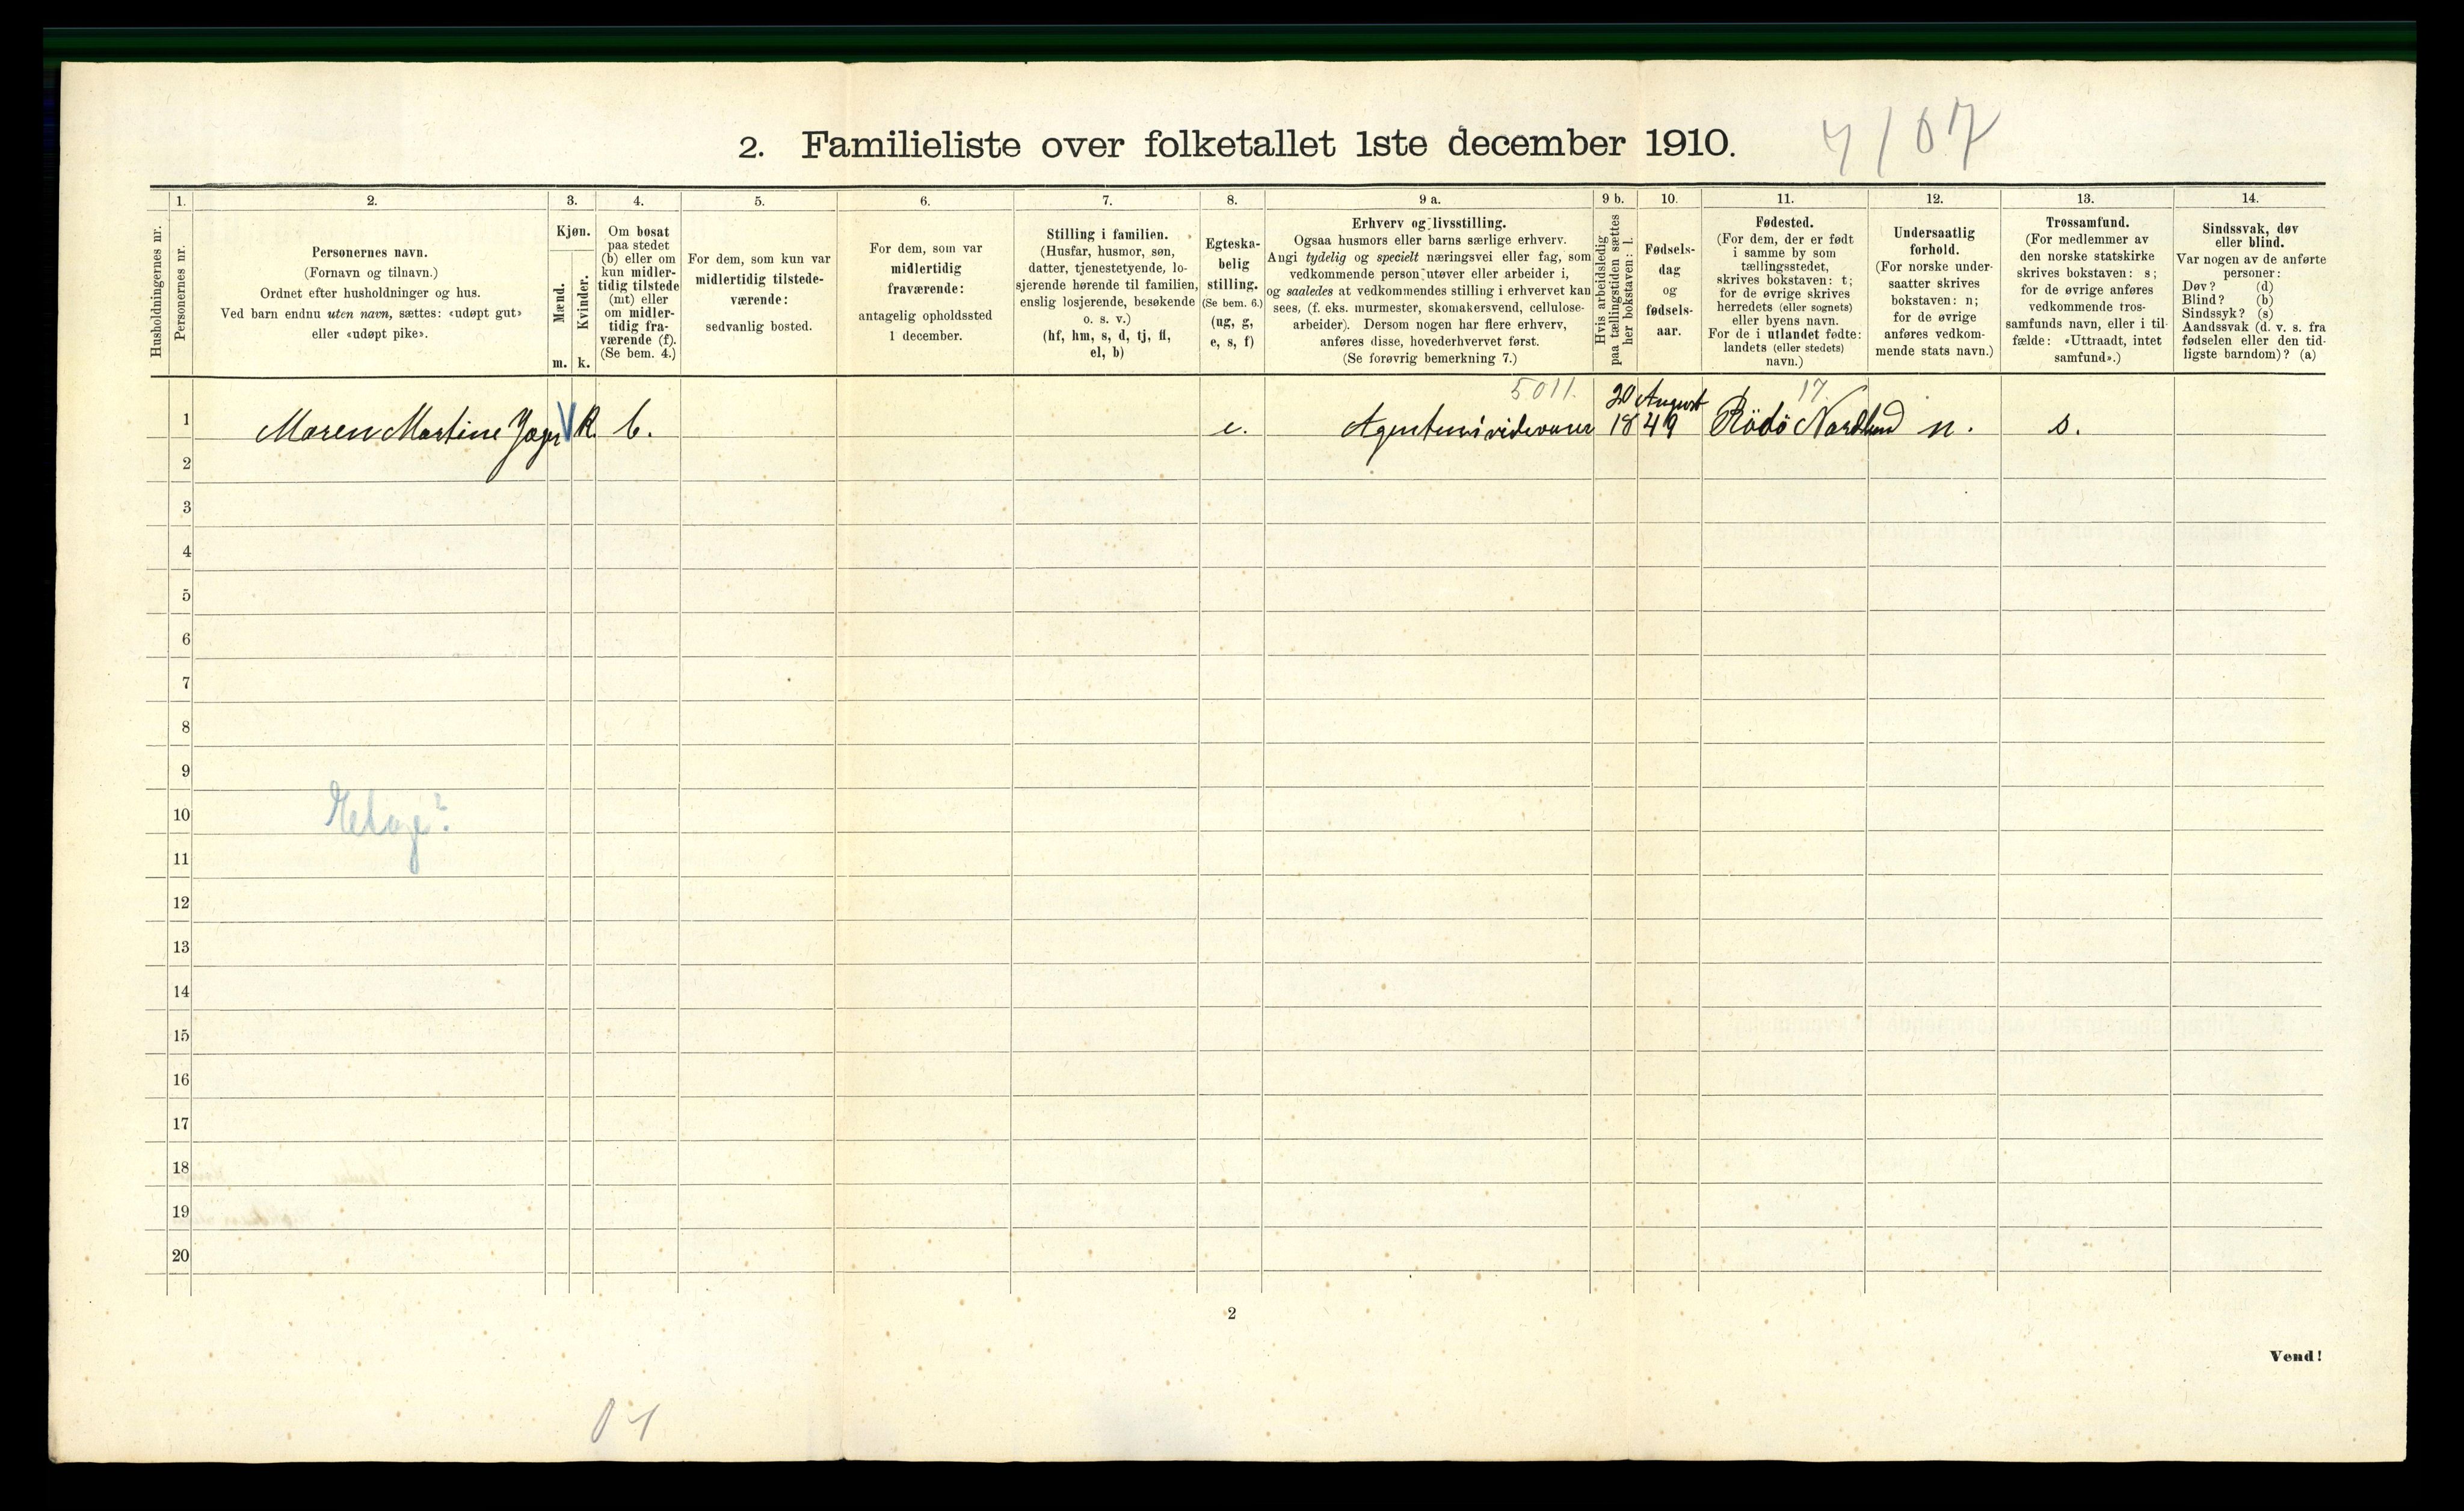 4/07
2. Familieliste over folketallet 1ste december 1910.
1. 2. 3. 4. 5. 6. 7. 8. 9 a. 9 b. 10. 11. 12. 13. 14.
Husholdningernes nr.
Personernes nr.
Personernes navn.
(Fornavn og tilnavn.)
Ordnet efter husholdninger og hus.
Ved barn endnu uten navn, sættes: «udøpt gut»
eller «udøpt pike».
Kjøn.
Mænd.
m.
Kvinder.
k.
Om bosat
paa stedet
(b) eller om
kun midler-
tidig tilstede
(mt) eller
om midler-
tidig fra-
værende (f).
(Se bem. 4.)
For dem, som kun var
midlertidig tilstede-
værende:
sedvanlig bosted.
For dem, som var
midlertidig
fraværende:
antagelig opholdssted
1 december.
Stilling i familien.
(Husfar, husmor, søn,
datter, tjenestetyende, lo-
sjerende hørende til familien,
enslig losjerende, besøkende
o. s. v.)
(hf, hm, s, d, tj, fl,
el, b)
Egteska-
belig
stilling.
(Se bem. 6.)
(ug, g,
e, s, f)
Erhverv og livsstilling.
Ogsaa husmors eller barns særlige erhverv.
Angi tydelig og specielt næringsvei eller fag, som
vedkommende person utøver eller arbeider i,
og saaledes at vedkommendes stilling i erhvervet kan
sees, (f. eks. murmester, skomakersvend, cellulose-
arbeider). Dersom nogen har flere erhverv,
anføres disse, hovederhvervet først.
(Se forøvrig bemerkning 7.)
Hvis arbeidsledig
paa tællingstiden sættes
her bokstaven: l.
Fødsels-
dag
og
fødsels-
aar.
Fødested.
(For dem, der er født
i samme by som
tællingsstedet,
skrives bokstaven: t;
for de øvrige skrives
herredets (eller sognets)
eller byens navn.
For de i utlandet fødte:
landets (eller stedets)
navn.)
Undersaatlig
forhold.
(For norske under-
saatter skrives
bokstaven: n;
for de øvrige
anføres vedkom-
mende stats navn.)
Trossamfund.
(For medlemmer av
den norske statskirke
skrives bokstaven: s;
for de øvrige anføres
vedkommende tros-
samfunds navn, eller i til-
fælde: «Uttraadt, intet
samfund».)
Sindssvak, døv
eller blind.
Var nogen av de anførte
personer:
Døv? (d)
Blind? (b)
Sindssyk? (s)
Aandssvak (d. v. s. fra
fødselen eller den tid-
ligste barndom)? (a)
5011. 20 August 17.
1 Maren Martine Jæger k. b. e. Agentur i videvarer 1849 Rödö Nordland n. s.
2
3
4
5
6
7
8
9
10
11
12
13
14
15
16
17
18
19
20
2
Vend!
01